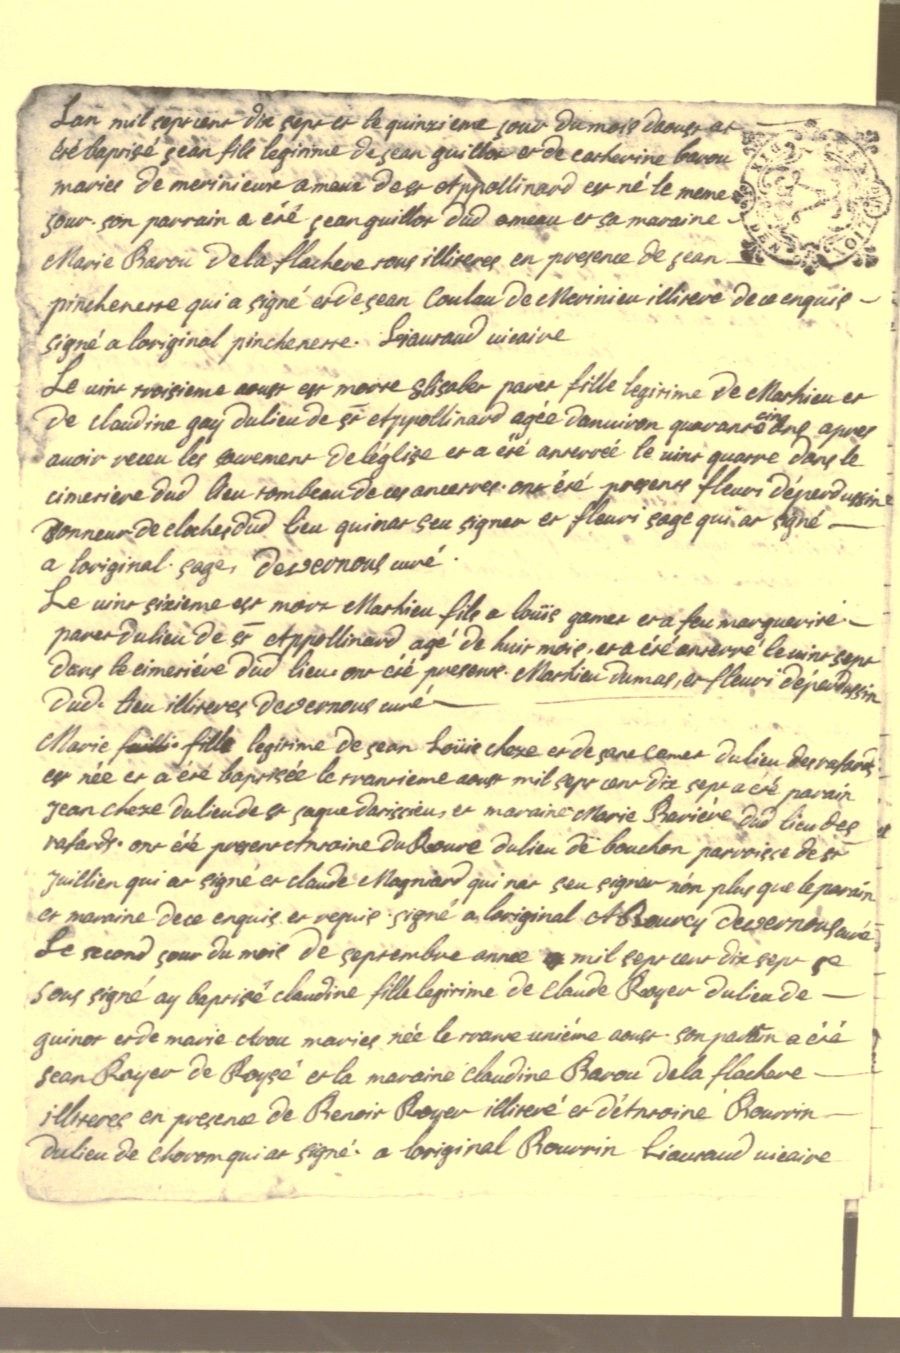 Lan mil sept cent dix sept et le quinzieme jour du mois daoust at
été baptisé jean fils legitime de jean guillot et de catherine barou
maries de merinieux ameau de st Appollinard est né le meme
jour. son parrain a été jean guillot dud ameau et sa maraine
Marie Barou de la flachere tous illiteres en presence de jean
pinchenette qui a signé et de jean Coulau de Merinieu illitere de ce enquis
signé a loriginal pinchenette. Liauraud vicaire
Le vint troisieme aoust est morte Elisabet paret fille legitime de Mathieu et
de claudine gay du lieu de st Appollinard agée danviron quarante cinq ans apres
avoir receu les sacrement de léglise et a été anterreé le vint quatre dans le
cimetiere dud lieu tombeau de ces ancetres. ont été presents fleuri déperdussin
sonneur de cloches dud lieu qui nat seu signer et fleuri sage qui at signé
a loriginal. sage, devernous curé.
Le vint sixieme est mort Mathieu fils a loüis gamet et a feu marguerite
paret du lieu de st Appollinard agé de huit mois, et a été anterré le vint sept
dans le cimetiére dud lieu. ont été present. Mathieu dumas, et fleuri déperdussin
dud. lieu illiteres devernous curé
Marie fille legitime de jean Loüis cheze et de jane Camet du lieu des rafards
est née et a été baptisée le trantieme aoust mil sept cent dix sept a été parain
Jean cheze du lieu de st jaque darissieu, et maraine Marie Bariére dud lieu des
rafards. ont été present Antoine du Roure du lieu de bouchon parroisse de st
Juillien qui at signé et claude Magniard qui nat seu signer nón plus que le parain
et maraine de ce enquis et requis. signé a loriginal A Rourcy devernous curé
Le second jour du mois de septembre anneé mil sept cent dix sept je
sous signé ay baptisé claudine fille legitime de Claude Royer du lieu de
guinot et de marie Avou maries née le trante uniéme aoust. son parain a été
jean Royer de Roysé et la maraine Claudine Barou de la flachere
illiteres en presence de Benoit Royer illiteré et d'Antoine Rouvrin
du lieu de Chorom qui at signé. a loriginal Rouvrin Liauraud vicaire